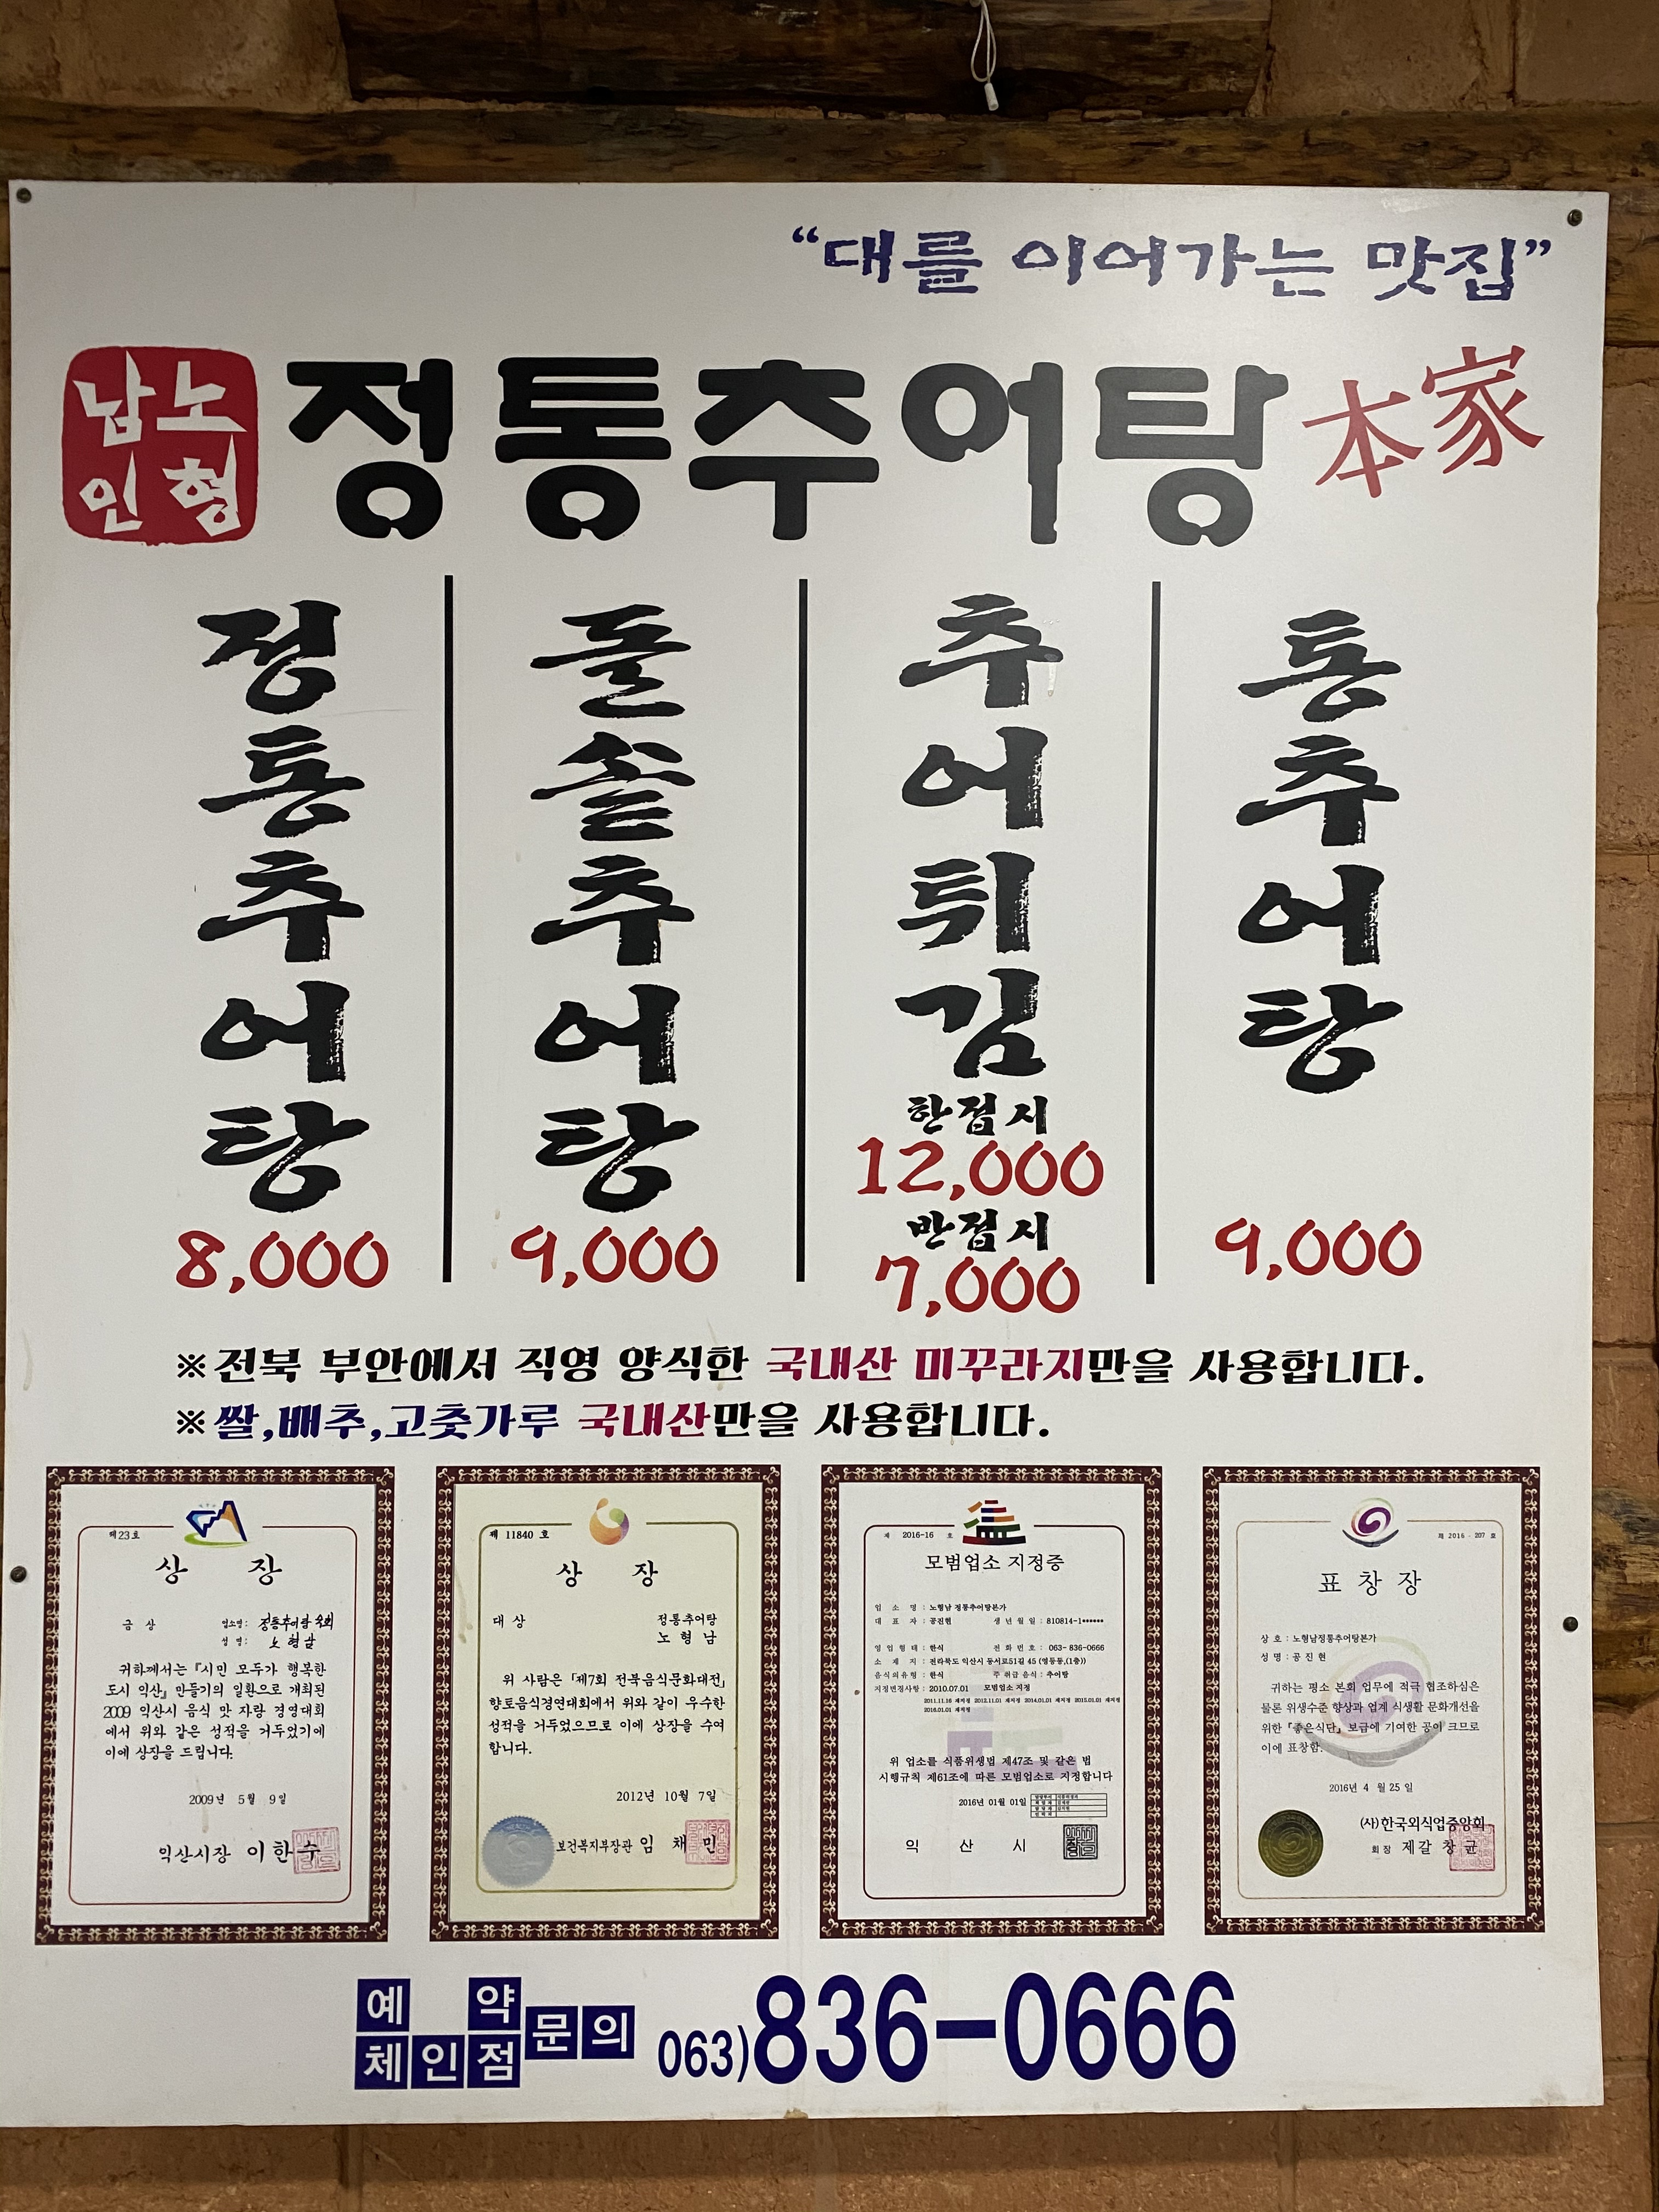 “대를 이어가는 맛집”
남노
인형
정통추어탕 本家
정통추어탕
8,000
돌솥추어탕
9,000
추어튀김
한접시
12,000
반접시
7,000
통추어탕
9,000
※전북 부안에서 직영 양식한 국내산 미꾸라지만을 사용합니다.
※쌀,배추,고춧가루 국내산만을 사용합니다.
제23호
상 장
금 상
업소명:
성 명: 노형남
귀하께서는 『시민 모두가 행복한
도시 익산』 만들기의 일환으로 개최된
2009 익산시 음식 맛 자랑 경영대회
에서 위와 같은 성적을 거두었기에
이에 상장을 드립니다.
2009년 5월 9일
익산시장 이한수
제 11840 호
상 장
대 상
정통추어탕
노 형 남
위 사람은 「제7회 전북음식문화대전」
향토음식경연대회에서 위와 같이 우수한
성적을 거두었으므로 이에 상장을 수여
합니다.
2012년 10월 7일
보건복지부장관 임 채 민
제 2016-16 호
모범업소 지정증
업 소 명 : 노형남 정통추어탕본가
대 표 자 : 공진현 생년월일 : 810814-1******
영업형태 : 한식 전화번호 : 063-836-0666
소 재 지 : 전라북도 익산시 동서로51길 45 (영등동,(1층))
음식의유형 : 한식 주 취급 음식 : 추어탕
지정변경사항 : 2010.07.01 모범업소 지정
2011.11.16 재지정 2012.11.01 재지정 2014.01.01 재지정 2015.01.01 재지정
2016.01.01 재지정
위 업소를 식품위생법 제47조 및 같은 법
시행규칙 제61조에 따른 모범업소로 지정합니다
2016년 01월 01일
익 산 시
제 2016 - 207 호
표 창 장
상 호 : 노형남정통추어탕본가
성 명 : 공 진 현
귀하는 평소 본회 업무에 적극 협조하심은
물론 위생수준 향상과 업계 식생활 문화개선을
위한 『좋은식단』 보급에 기여한 공이 크므로
이에 표창함.
2016년 4 월 25 일
(사)한국외식업중앙회
회장 제갈 창 균
예 약
체인점
문의
063)836-0666